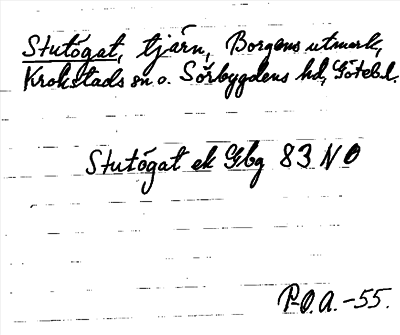 Stutögat, tjärn, Borgens utmark,
Krokstads sn o. Sörbygdens hd, Götebl.
Stutögat ek Gbg 83 NO
P.O.A.-55.